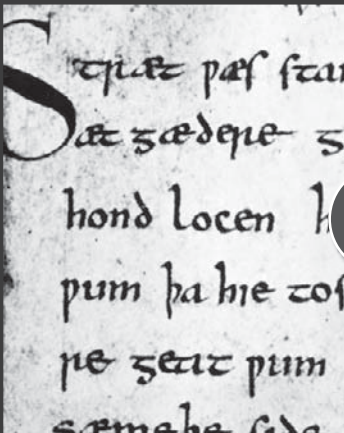 Stræt ƿæs stan
æt gædere g
hond locen h
ƿum þa hie tos
re geat ƿum
sæmeþe side